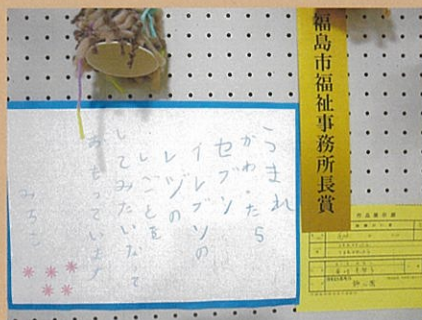 福島市福祉事務所長賞
うまれ
かわったら
セブン
イレブンの
レジの
しごとを
してみたいなって
おもっています
みちこ
作品展示票